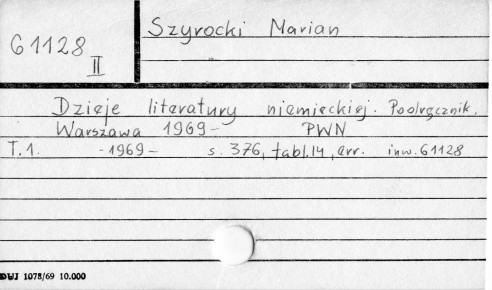 G 1128
II
Szyrocki Marian
Dzieje literatury niemieckiej. Podręcznik.
Warszawa 1969- PWN
T.1. -1969- s. 376, tabl.14, err. inw. 61128
DWJ 1078/69 10.000